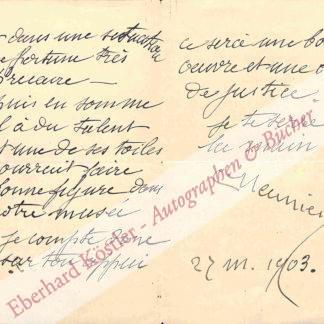 dans une situation
fortune très
précaire —
puis en somme
il a du talent
et une de ses toiles
pourrait faire
bonne figure dans
notre musée
je compte donc
sur ton appui
ce sera une bo
oeuvre et une
de justice
je te serre
la main
Meunier
27 III. 1903.
Eberhard Köstler - Autographen & Bücher